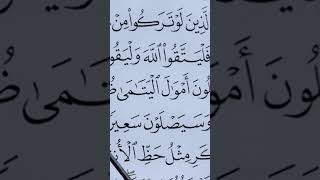 لَّذِينَ لَوْ تَرَكُوا۟ مِنْ
فَلْيَتَّقُوا۟ ٱللَّهَ وَلْيَقُو
لُونَ أَمْوَٰلَ ٱلْيَتَـٰمَىٰ ظُ
وَسَيَصْلَوْنَ سَعِيرً
كَرِ مِثْلُ حَظِّ ٱلْأُن